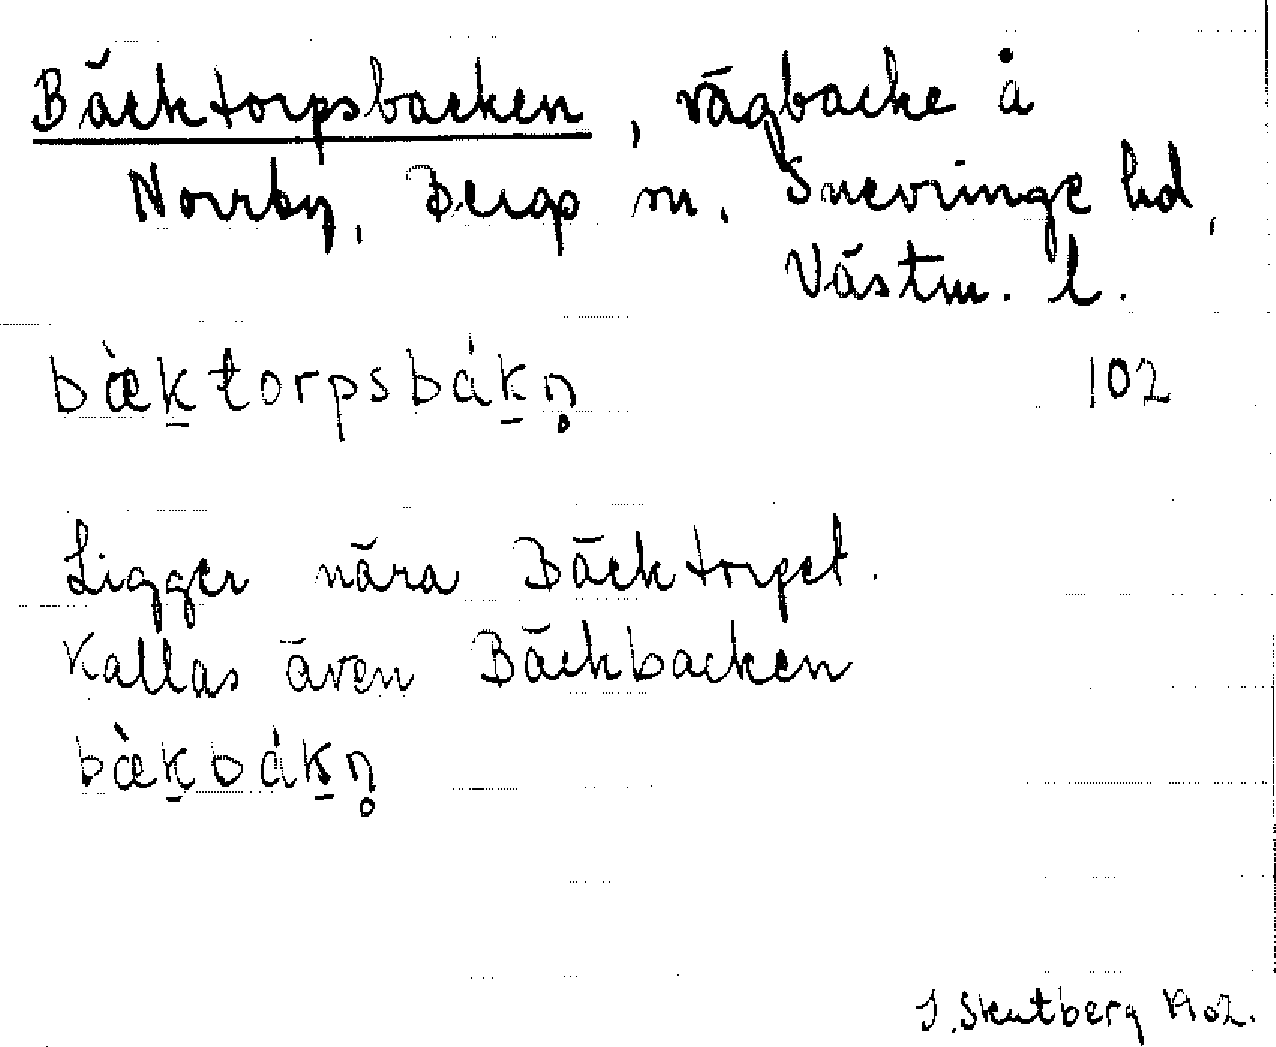 Bäcktorpsbacken, vägbacke å
Norrby, Bergs sn. Snevringe hd,
Västm. l.
bæ̀k̠torpsbák̠n̥ 102
Ligger nära Bäcktorpet.
Kallas även Bäckbacken
bæ̀k̠bák̠n̥
J. Skutberg 1902.